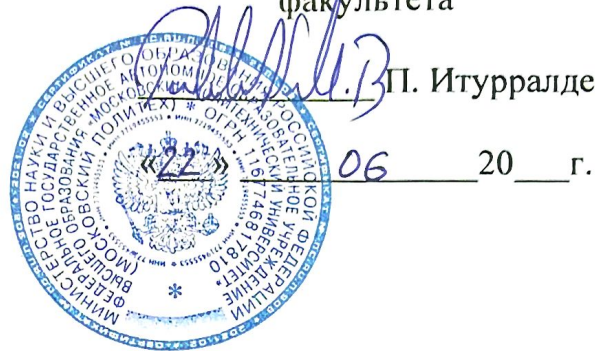 факультета
П. Итурралде
«22» 06 20___г.
МИНИСТЕРСТВО НАУКИ И ВЫСШЕГО ОБРАЗОВАНИЯ РОССИЙСКОЙ ФЕДЕРАЦИИ
ФЕДЕРАЛЬНОЕ ГОСУДАРСТВЕННОЕ АВТОНОМНОЕ ОБРАЗОВАТЕЛЬНОЕ УЧРЕЖДЕНИЕ
ВЫСШЕГО ОБРАЗОВАНИЯ «МОСКОВСКИЙ ПОЛИТЕХНИЧЕСКИЙ УНИВЕРСИТЕТ»
(МОСКОВСКИЙ ПОЛИТЕХ) * ОГРН 1167746817810